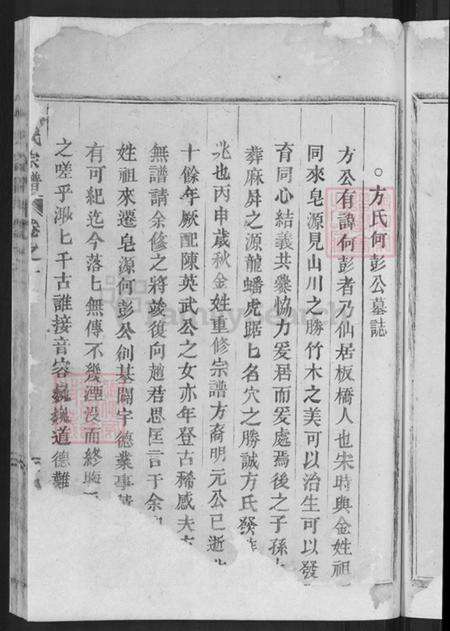 ○方氏何彭公墓誌
方公有諱何彭者乃仙居板橋人也宋時與金姓祖
同來皂源見山川之勝竹木之美可以治生可以發
育同心結義共爨協力爰居而爰處焉後之子孫
葬麻屏之源龍蟠虎踞匕名穴之勝誠方氏發
兆也丙申歲秋金姓重修宗譜方裔明元公已逝
十餘年厥配陳英武公之女亦年登古稀感夫
無譜請余修之將竣復向趙君思匡言于余
姓祖來遷皂源何彭公創基闢宇德業事
有可紀迄今落匕無傳不幾湮沒而終晦
之嗟乎渺匕千古誰接音容巍巍道德難
氏宗譜 卷之一